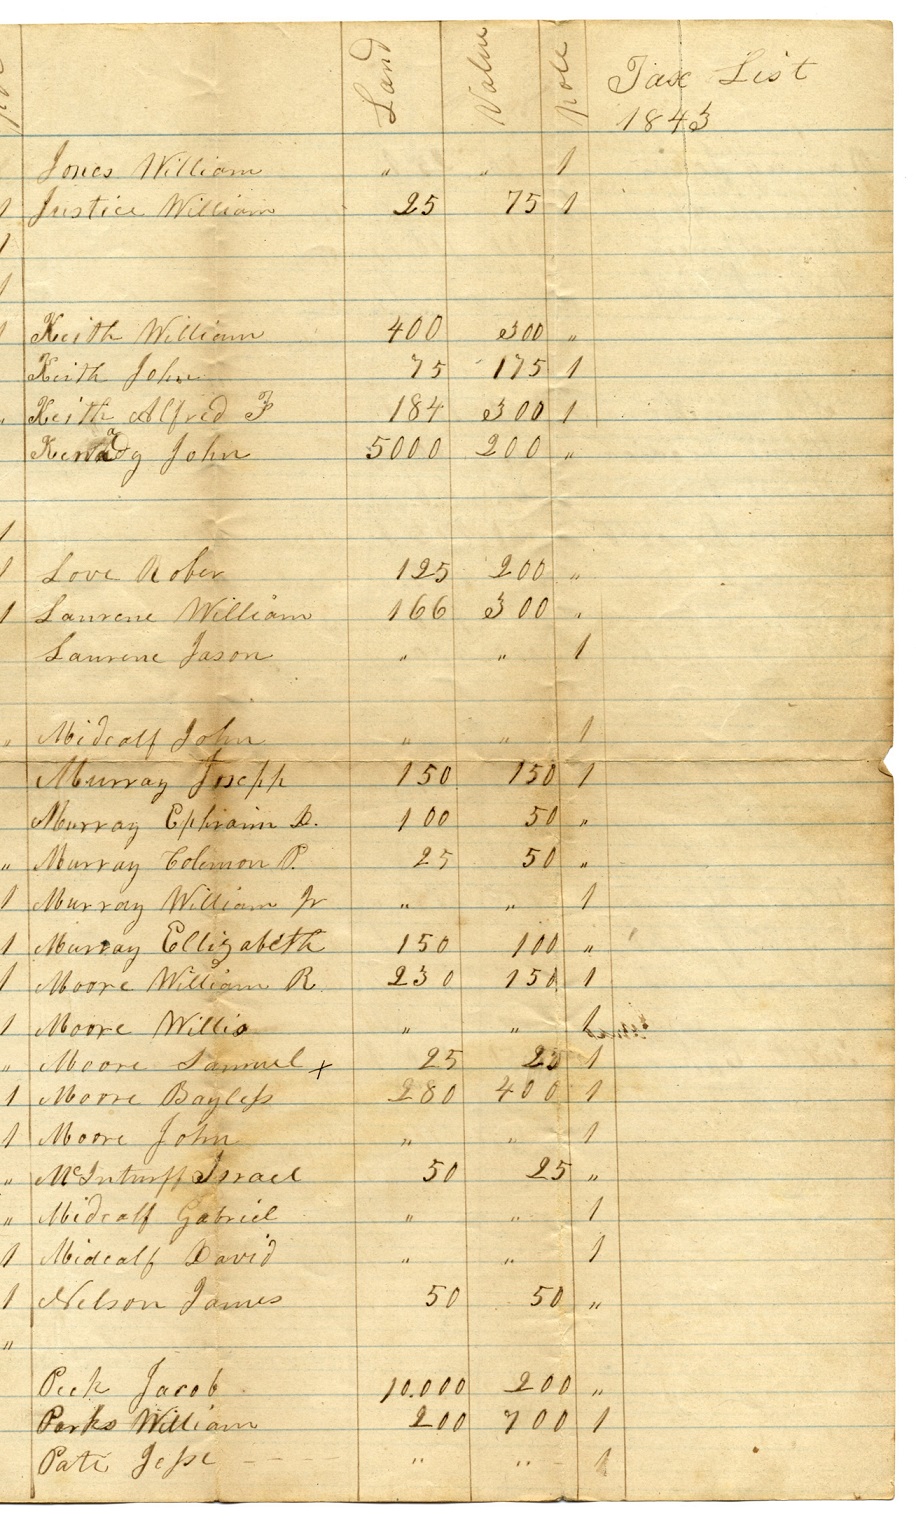 Land Value pole Tax List
1843
Jones William " " 1
Justice William 25 75 1
Keith William 400 300 "
Keith John 75 175 1
Keith Alfred F 184 300 1
John 5000 200 "
Love Rober 125 200 "
Laurene William 166 300 "
Laurene Jason " " 1
Midcalf John " " 1
Murray Josepp 150 150 1
Murray Ephraim D. 100 50 "
" Murray Colemon P. 25 50 "
1 Murray William Jr " " 1
1 Murray Ellizabeth 150 100 "
1 Moore William R. 230 150 1
1 Moore Willis " " 1
" Moore Samuel x 25 25 1
1 Moore Bayless 280 400 1
1 Moore John " " 1
" McInturff Israel 50 25 "
" Midcalf Gabriel " " 1
1 Midcalf David " " 1
1 Nelson James 50 50 "
"
Peek Jacob 10.000 200 "
Parks William 200 700 1
Pate Jesse - - - " " - 1